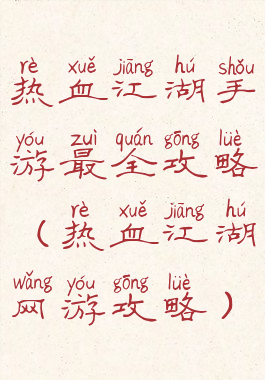 rè xuě jiāng hú shǒu
热血江湖手
yóu zuì quán gōng lüè
游最全攻略
rè xuě jiāng hú
（热血江湖
wǎng yóu gōng lüè
网游攻略）